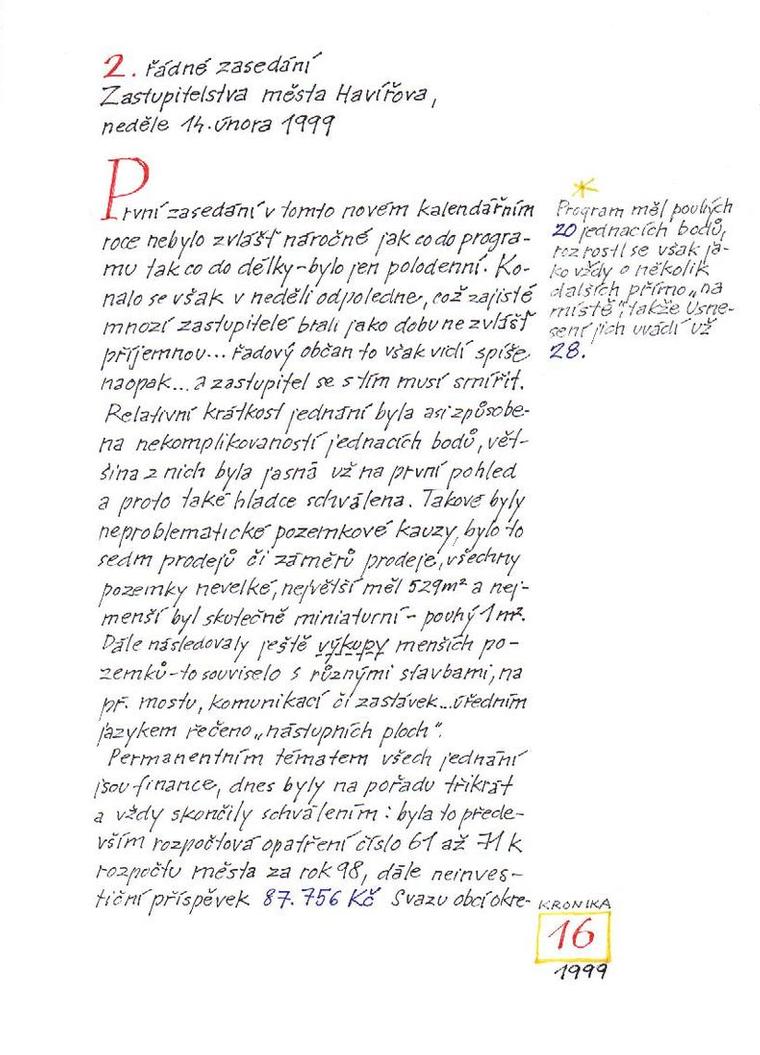 2. řádné zasedání
Zastupitelstva města Havířova,
neděle 14. února 1999
První zasedání v tomto novém kalendářním
roce nebylo zvlášť náročné jak co do progra-
mu tak co do délky - bylo jen polodenní. Ko-
nalo se však v neděli odpoledne, což zajisté
mnozí zastupitelé brali jako dobu ne zvlášť
příjemnou... řadový občan to však vidí spíše
naopak... a zastupitel se s tím musí smířit.
Relativní krátkost jednání byla asi způsobe-
na nekomplikovaností jednacích bodů, vět-
šina z nich byla jasná už na první pohled
a proto také hladce schválena. Takové byly
neproblematické pozemkové kauzy, bylo to
sedm prodejů či záměrů prodeje, všechny
pozemky nevelké, největší měl 529m² a nej-
menší byl skutečně miniaturní - pouhý 1 m².
Dále následovaly ještě výkupy menších po-
zemků - to souviselo s různými stavbami, na
př. mostu, komunikací či zastávek... úředním
jazykem řečeno „nástupních ploch“.
Permanentním tématem všech jednání
jsou finance, dnes byly na pořadu třikrát
a vždy skončily schválením: byla to přede-
vším rozpočtová opatření číslo 61 až 71 k
rozpočtu města za rok 98, dále neinves-
tiční příspěvek 87.756 Kč Svazu obcí okre-
*
Program měl pouhých
20 jednacích bodů,
rozrostl se však ja-
ko vždy o několik
dalších přímo „na
místě“, takže Usne-
sení jich uvádí už
28.
KRONIKA
16
1999